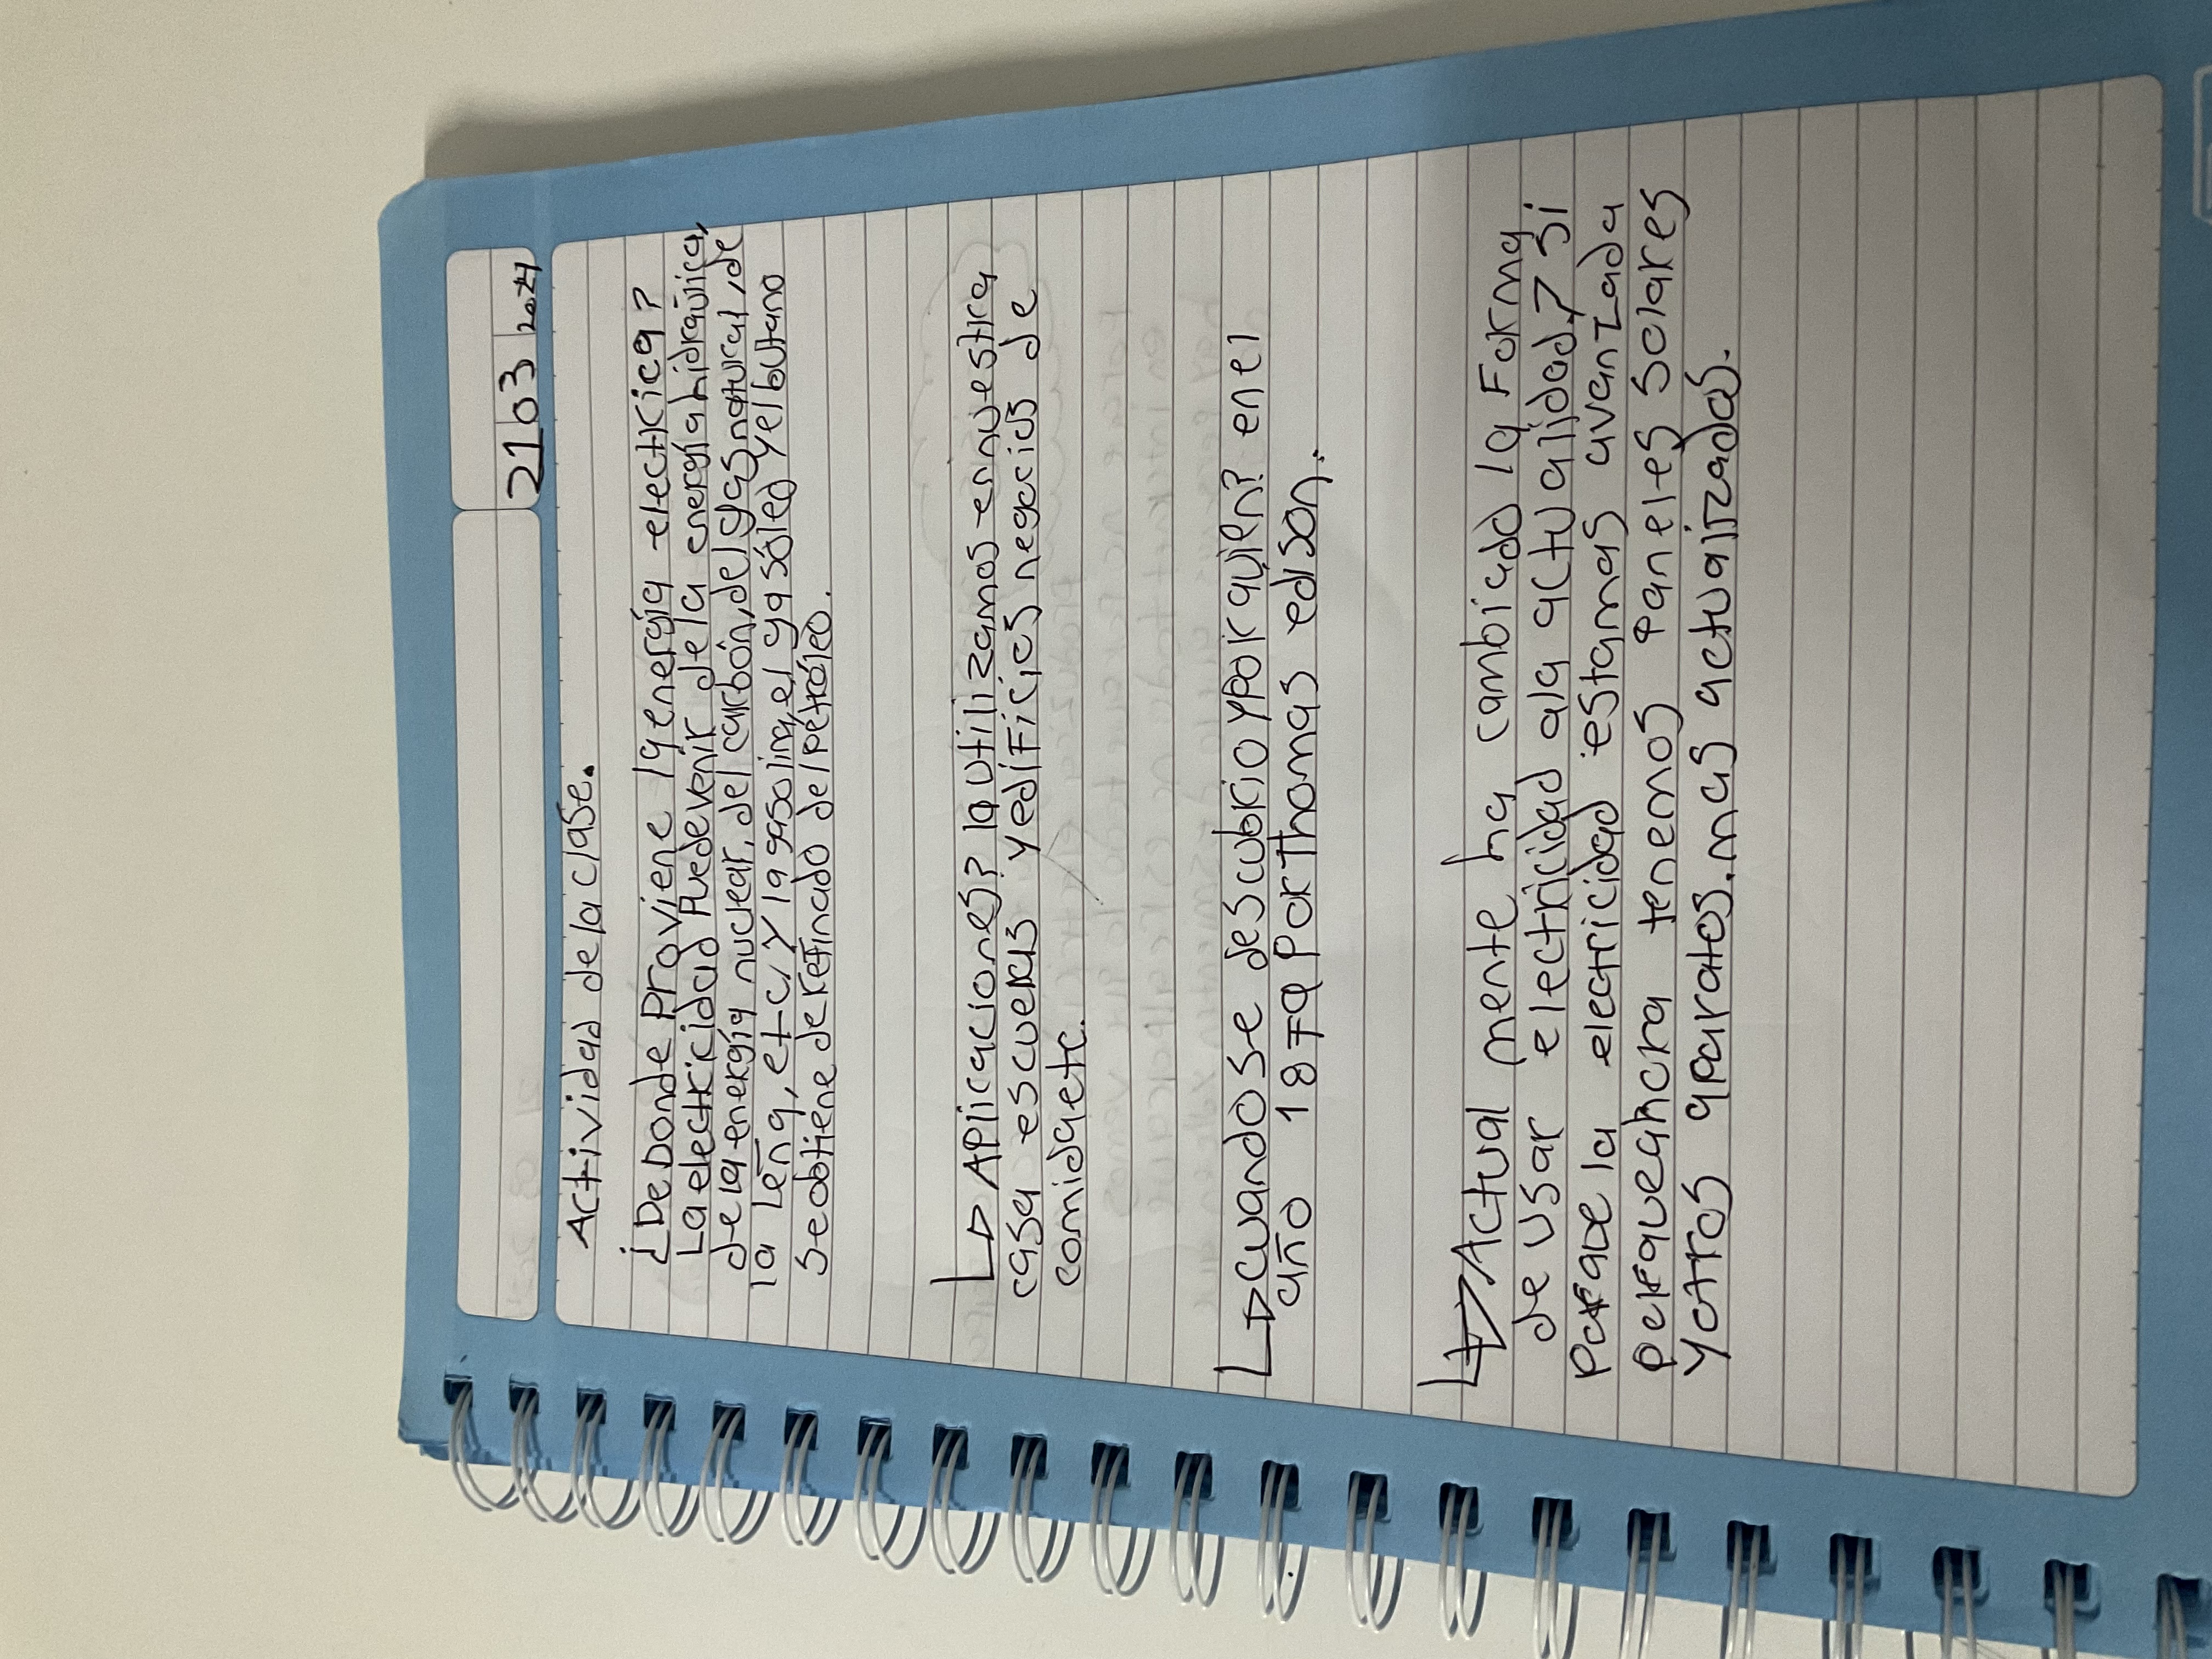 21 03 2024
Actividad de la clase.
¿De Donde Proviene la energía electrica?
La electricidad Puede venir de la energía hidraúlica,
de la energía nuclear, del carbón, del gas natural, de
la Leña, etc, y la gasolina, el gasóleo y el butano
se obtiene de refinado del petróleo.
APlicaciones? la utilizamos en nuestra
casa escuelas y edificios negocios de
comida etc.
Cuando se descubrio y por quien? en el
año 1879 Por Thomas edison.
Actual mente ha cambiado la Forma
de usar electricidad a la actualidad? Si
Porque la electricidad estamas avanzada
porque ahora tenemos Paneles Solares
y otros aparatos. mas actuairzados.